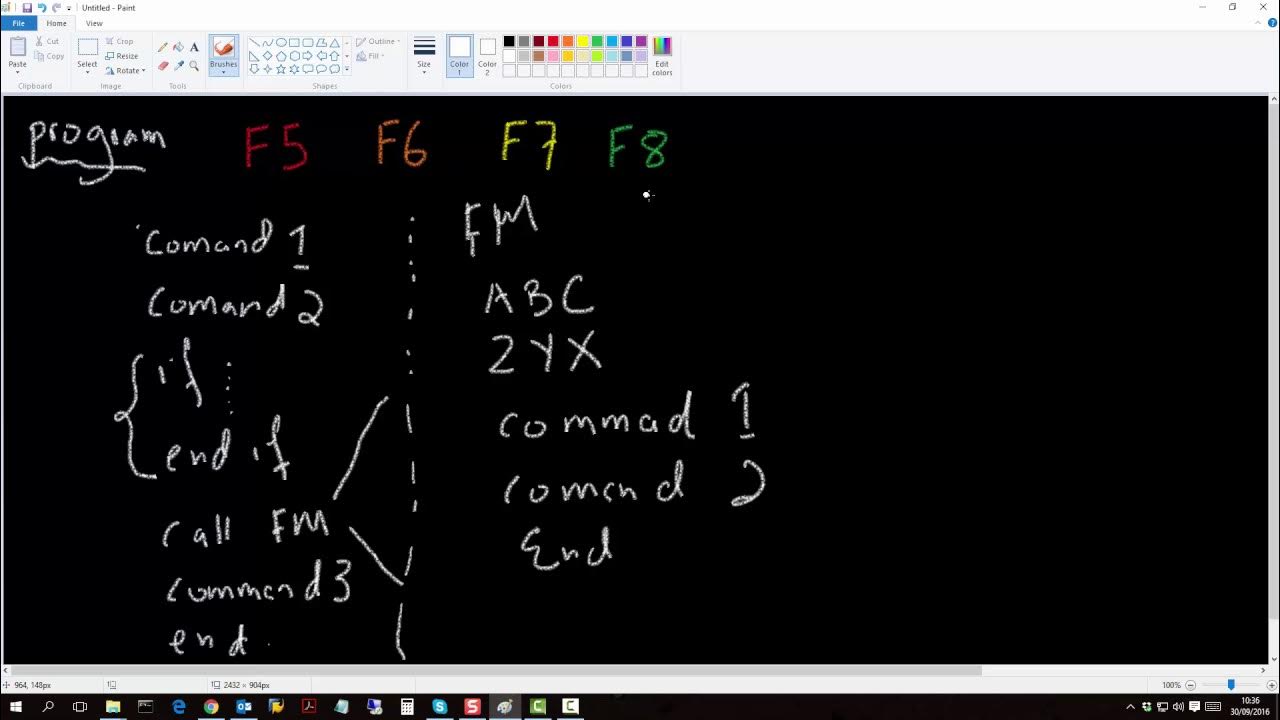 Untitled - Paint
File Home View
Paste Cut Copy Clipboard
Select Crop Resize Rotate Image
Tools
Brushes
Shapes Outline Fill
Size
Color 1 Color 2 Edit colors Colors
program F5 F6 F7 F8
Comand 1
Comand 2
if
end if
call FM
commend 3
end.
FM
ABC
ZYX
commad 1
comend 2
End
964, 148px 2432 × 904px 100%
10:36
30/09/2016